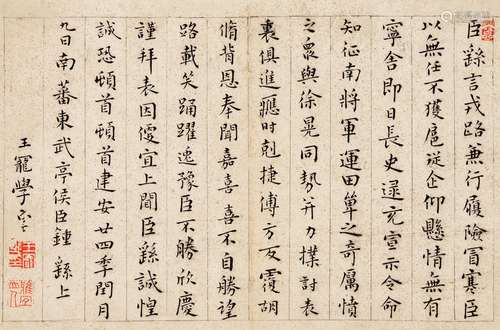 臣繇言戎路兼行履險冒寒臣
以無任不獲扈從企仰懸情無有
寧舍即日長史逯充宣示令命
知征南將軍運田單之奇厲憤
之眾與徐晃同勢并力撲討表
裏俱進應時剋捷傅方反覆胡
脩背恩奉聞嘉喜喜不自勝望
路載笑踊躍逸豫臣不勝欣慶
謹拜表因便宜上聞臣繇誠惶
誠恐頓首頓首建安廿四季閏月
九日南蕃東武亭侯臣鍾繇上
王寵學書